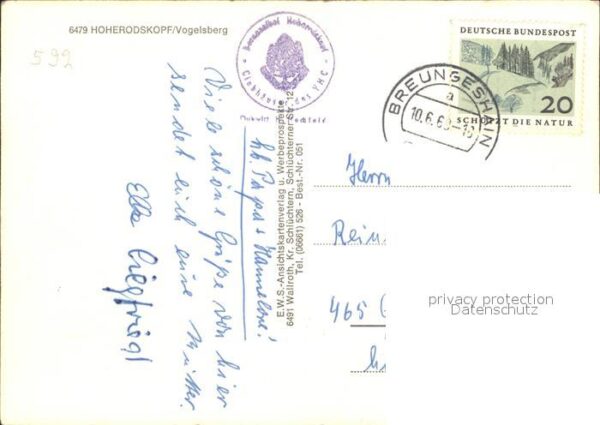 6479 HOHERODSKOPF/Vogelsberg
592
Berggasthof Hoherodskopf
Clubhaus des VHC
DEUTSCHE BUNDESPOST
20
SCHÜTZT DIE NATUR
BREUNGESHAIN
a
10.6.69-18
lb. Papa + Hannelore!
Viele schöne Grüße von hier
sendet euch eure Mutter.
Elke Siegfried
E.W.S.-Ansichtskartenverlag u. Werbeprospekte
6491 Wallroth, Kr. Schlüchtern, Schlüchterner Str. 12
Tel. (06661) 526 - Best.-Nr. 051
Herrn
Rein
465
privacy protection
Datenschutz